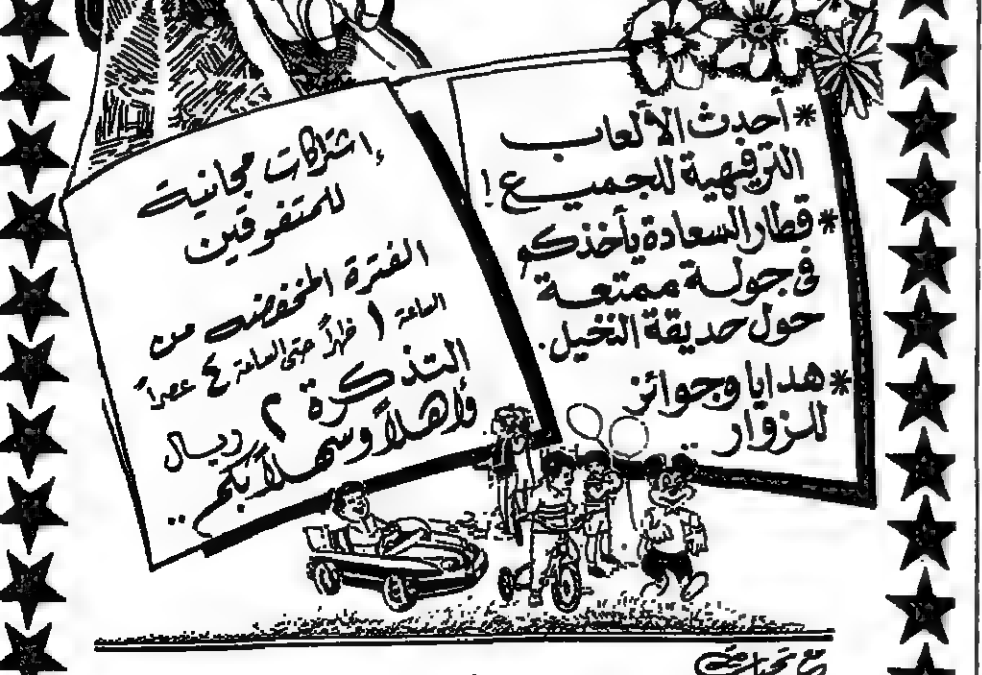 * أحدث الألعاب
الترفيهية للجميع !
* قطار السعادة يأخذكم
فى جولة ممتعة
حول حديقة النخيل .
* هدايا وجوائز
للزوار ..
إشتراكات مجانية
للمتفوقين
الفترة المخفضه من
الساعة ١ ظهراً حتى الساعة ٤ عصراً
التذكرة ٢ ريال
وأهلاً وسهلاً بكم ..
مع تحيات